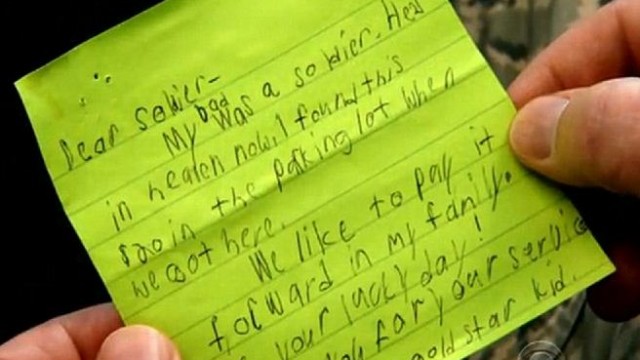 Dear Soldier-
My dad was a soldier. Hes
in heaven now. I found this
$20 in the parking lot when
we got here.
We like to pay it
forward in my family.
your lucky day!
for your service.
gold star kid.